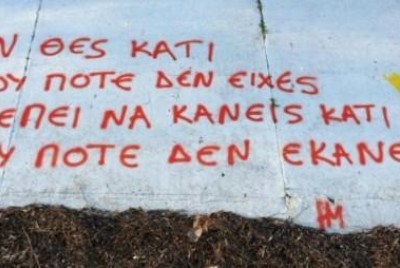 Ν ΘΕΣ ΚΑΤΙ
ΟΥ ΠΟΤΕ ΔΕΝ ΕΙΧΕΣ
ΕΠΕΙ ΝΑ ΚΑΝΕΙΣ ΚΑΤΙ
Υ ΠΟΤΕ ΔΕΝ ΕΚΑΝΕ